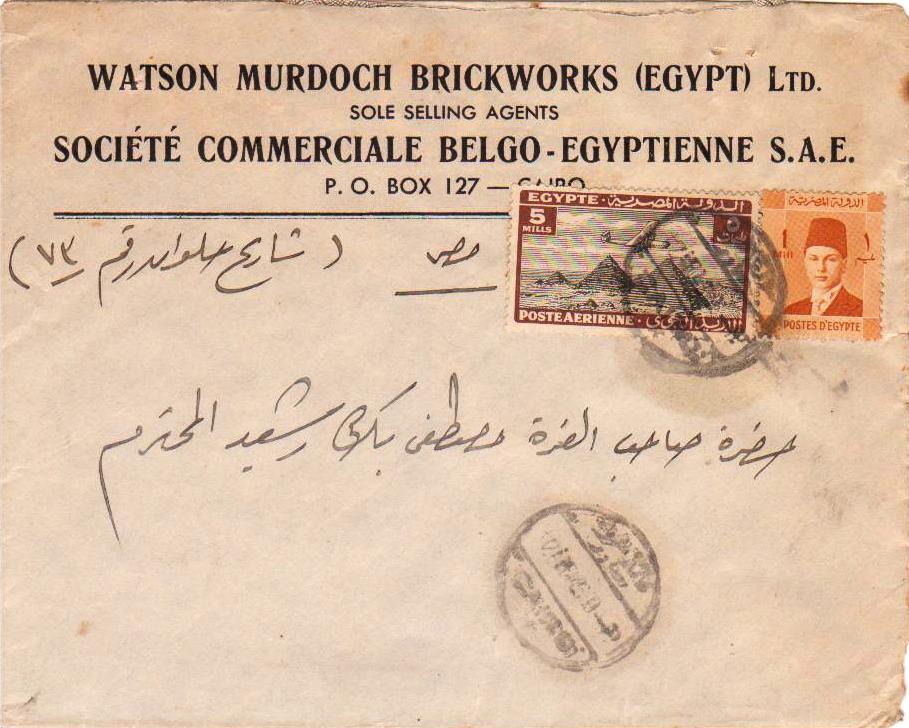 WATSON MURDOCH BRICKWORKS (EGYPT) LTD.
SOLE SELLING AGENTS
SOCIÉTÉ COMMERCIALE BELGO-EGYPTIENNE S.A.E.
P. O. BOX 127 — CAIRO
EGYPTE · الدولة المصرية
5
MILLS
٥
POSTE AERIENNE ·
الدولة المصرية
1
MILL
١
POSTES D'EGYPTE
مصر ( شارع حلوان رقم ٧٣ )
حضرة صاحب العزة مصطفى بك رشيد المحترم